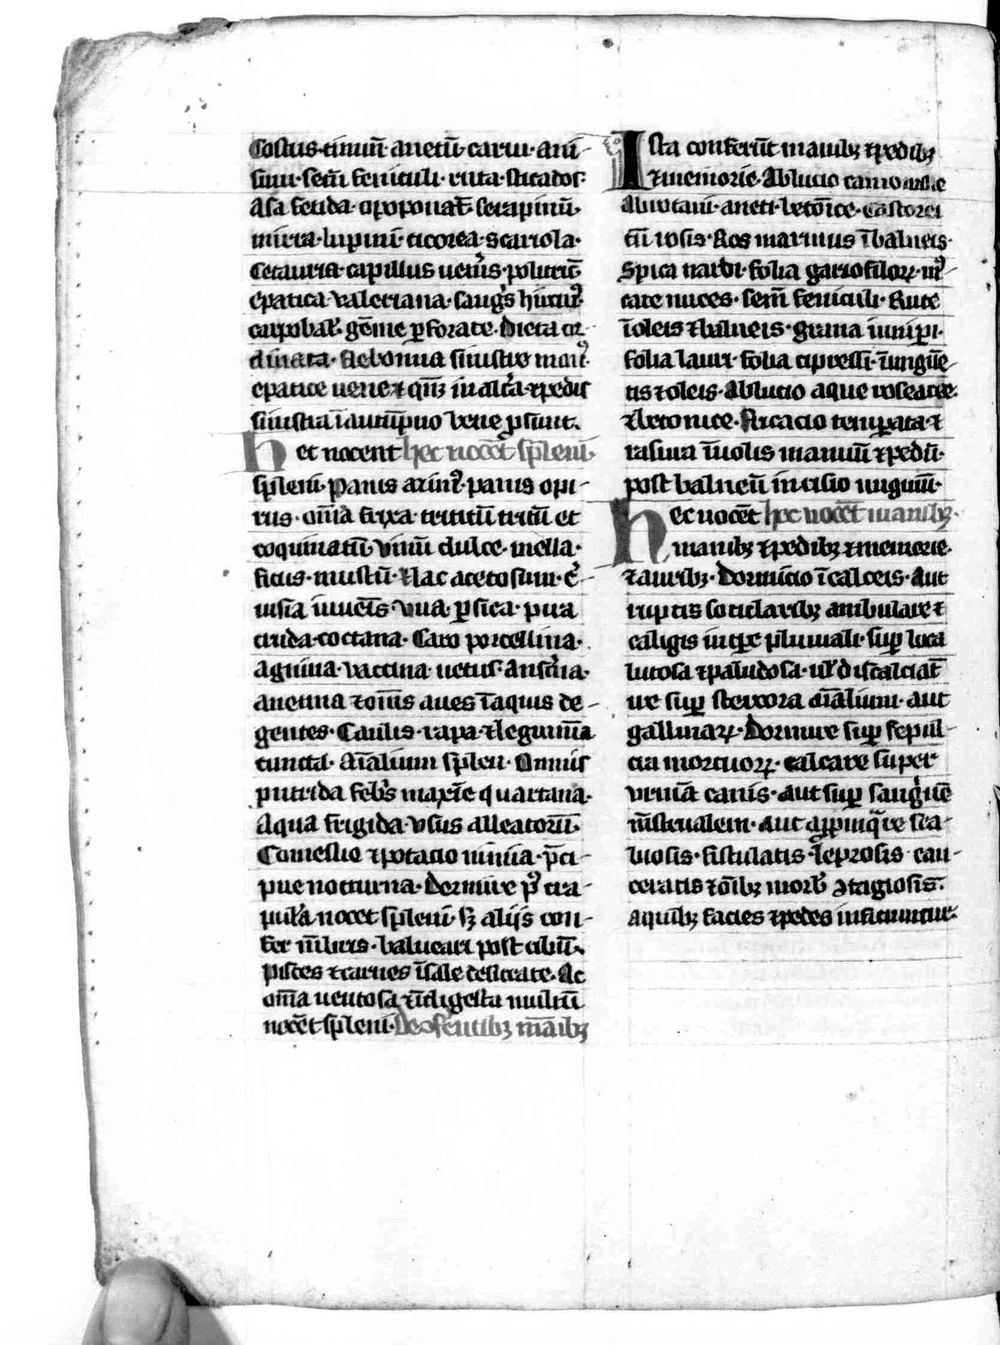 Costus· cimiū· anetū· carui· ani-
sum· sem̄ feniculi· ruta· sticados·
Asa fetida· opoponac̄· serapinū·
mirra· lupini· cicorea· scariola·
Cētauria· capillus uen̄is· politric̄
epatica· valeriana· sanḡs hircin̄·
carpobal̄· gēme perforate· Dieta or-
dinata· fleboniia sinistre man̄·
epatice uene et qn̄ in alt̄a et pedis
sinistra ī autūpno bene prosunt.
Het nocent hec nocēt spleni·
spleni· Panis azim̄· panis opi-
rus· om̄ia frixa· triticū tritū et
coquinatū· vinū dulce· mella·
ficus· mustū· et lac acetosum· C̄-
uisia iuuēis· vua· persica· pira
cruda· coctana· Caro porcellina·
Agnina· vaccina· uetus· Anserīa·
anetina et oīns aues ī aquis de-
gentes· Caulis· rapa· et legumīa
cuncta· Aīalium splen· Omnis
putrida febris maxīe quartana·
Aqua frigida· vsus alleatorū·
Comestio et potatio nimia· p̄ci-
pue nocturna· Dormire p̄ cra-
pula nocet spleni· sꝫ alijs con-
fert m̄bris· balneari post cibū·
pisces et carnes ī sale desiccate· Ac
om̄ia uentosa et īdigesta multū
nocēt spleni· De offentibꝫ māibꝫ
Ista conferūt manibꝫ et pedibꝫ
et memorie· Ablucio camomille
Abrotani· aneti· betoīce· Castorei
cū rosis· Ros marinus ī balneis·
Spica nardi· folia gariofiloꝝ· m̄-
cate nuces· sem̄ feniculi· Rute
ī oleis et balneis· grana iunip̄i·
folia lauri· folia cipressi· ī ungūe-
tis et oleis· Ablucio aque rosacee·
et betonice· fricacio temperata· et
rasura ī uolis manuū et pedū·
post balneū incisio unguiū·
Hec nocēt hec nocēt manibꝫ·
manibꝫ et pedibꝫ et memorie·
et auribꝫ· Dormicio ī calceis· Aut
ruptis sotularibꝫ ambulare et
caligis in tp̄e pluuiali· sup̄ loca
lutosa et paludosa· ul̄ discalciat̄
ire sup̄ stercora aīalium· aut
gallinaꝝ· Dormire sup̄ sepul-
cra mortuoꝝ· calcare super
vrinā canis· Aut sup̄ sanguīe
m̄strualem· aut appinq̄re sca-
biosis· fistulatis· leprosis· can-
ceratis et oībꝫ morb̄ ꝯtagiosis·
Aquibꝫ facies et pedes inficiuntur·